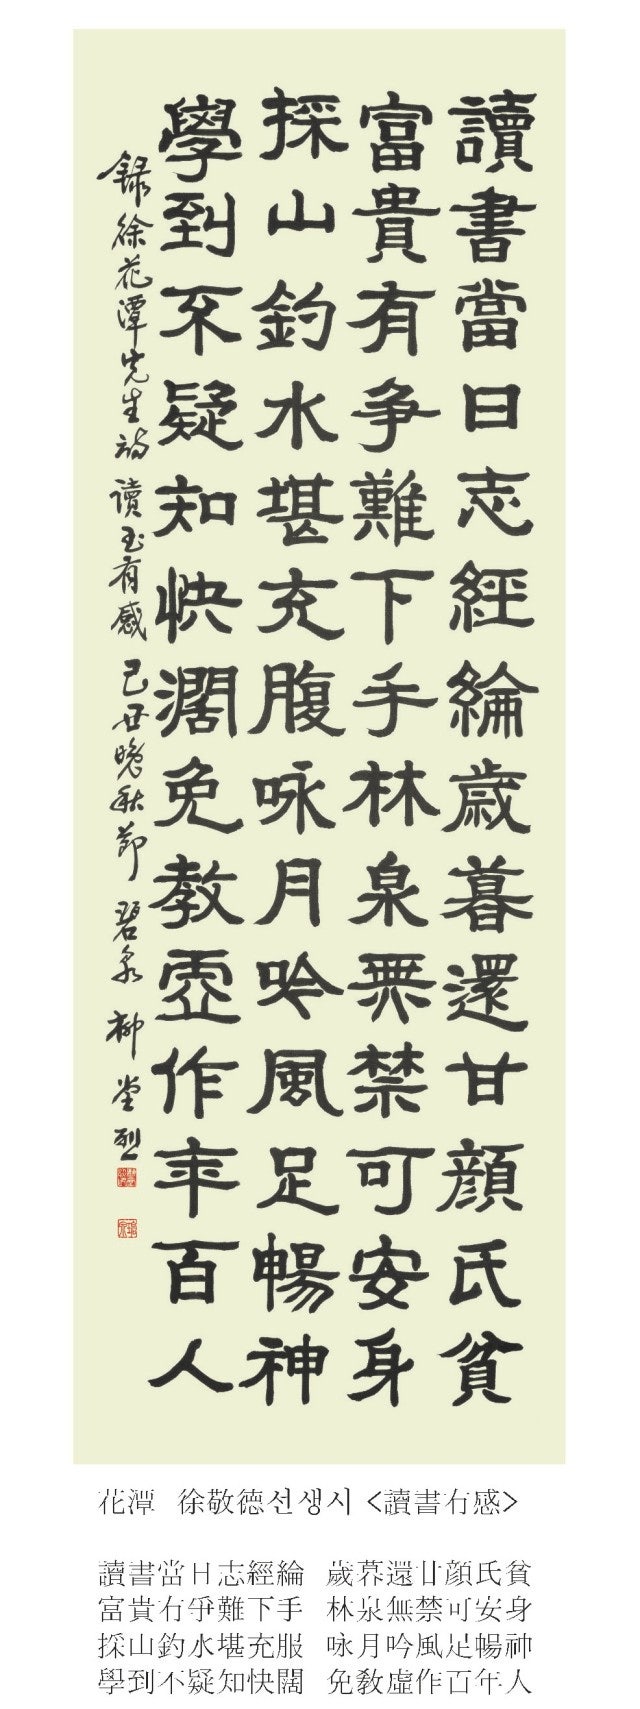 讀書當日志經綸歲暮還甘顔氏貧
富貴有争難下手林泉無禁可安身
採山釣水堪充腹咏月吟風足暢神
學到不疑知快濶免教虛作年百人
錄徐花潭先生詩 讀書有感 己丑晚秋節 碧泉 柳堂烈
花潭 徐敬德선생시 <讀書有感>
讀書當日志經綸 歲暮還甘顔氏貧
富貴有爭難下手 林泉無禁可安身
採山釣水堪充服 咏月吟風足暢神
學到不疑知快闊 免敎虛作百年人